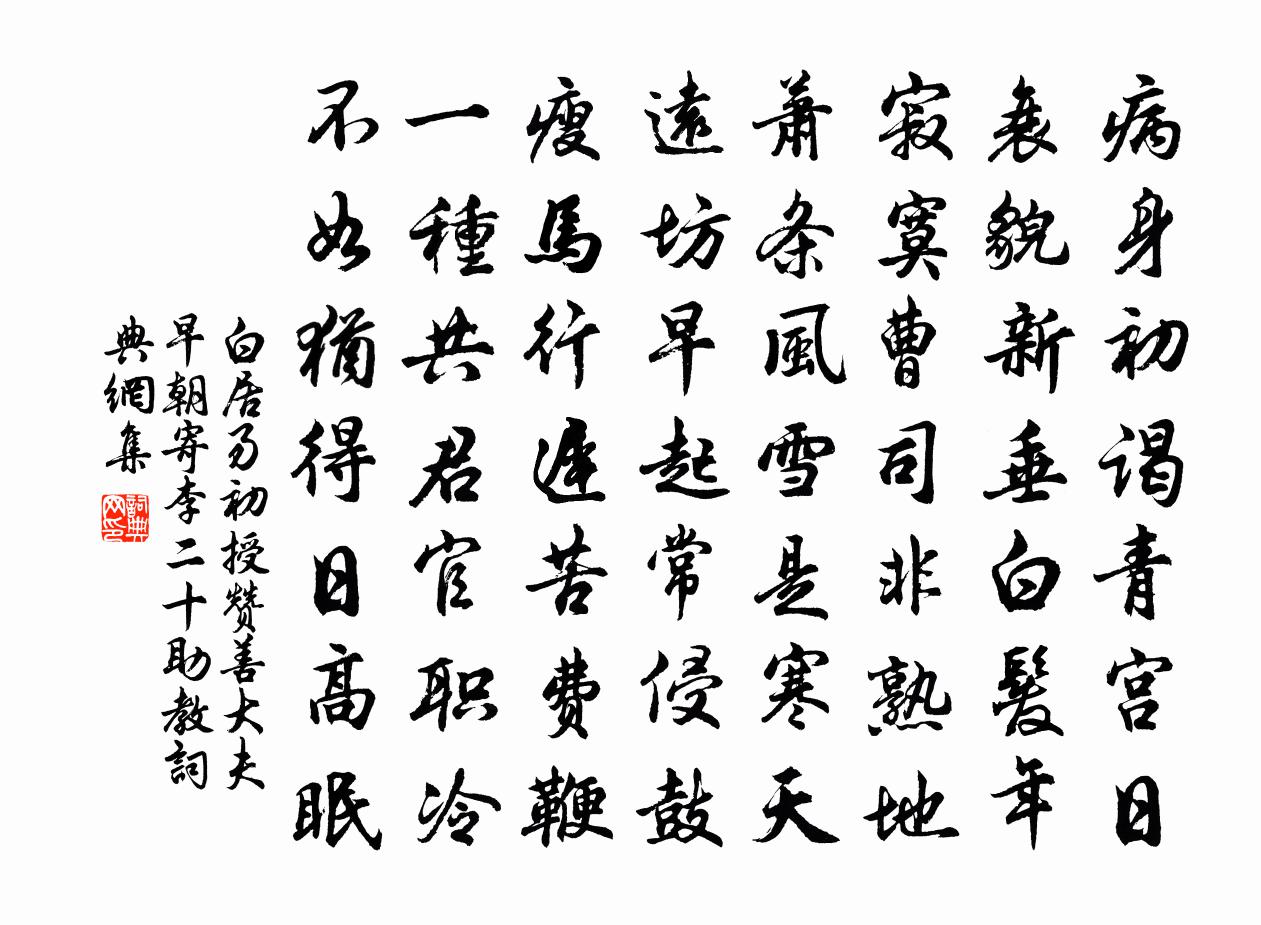 病身初谒青宫日
衰貌新垂白髮年
寂寞曹司非熟地
萧条風雪是寒天
遠坊早起常侵鼓
瘦馬行遲苦费鞭
一種共君官职冷
不如猶得日高眠
白居易初授赞善大夫
早朝寄李二十助教詞
典網集
詞典
网印